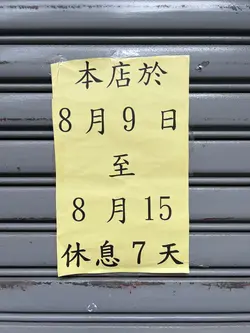 本店於
8月9日
至
8月15
休息7天